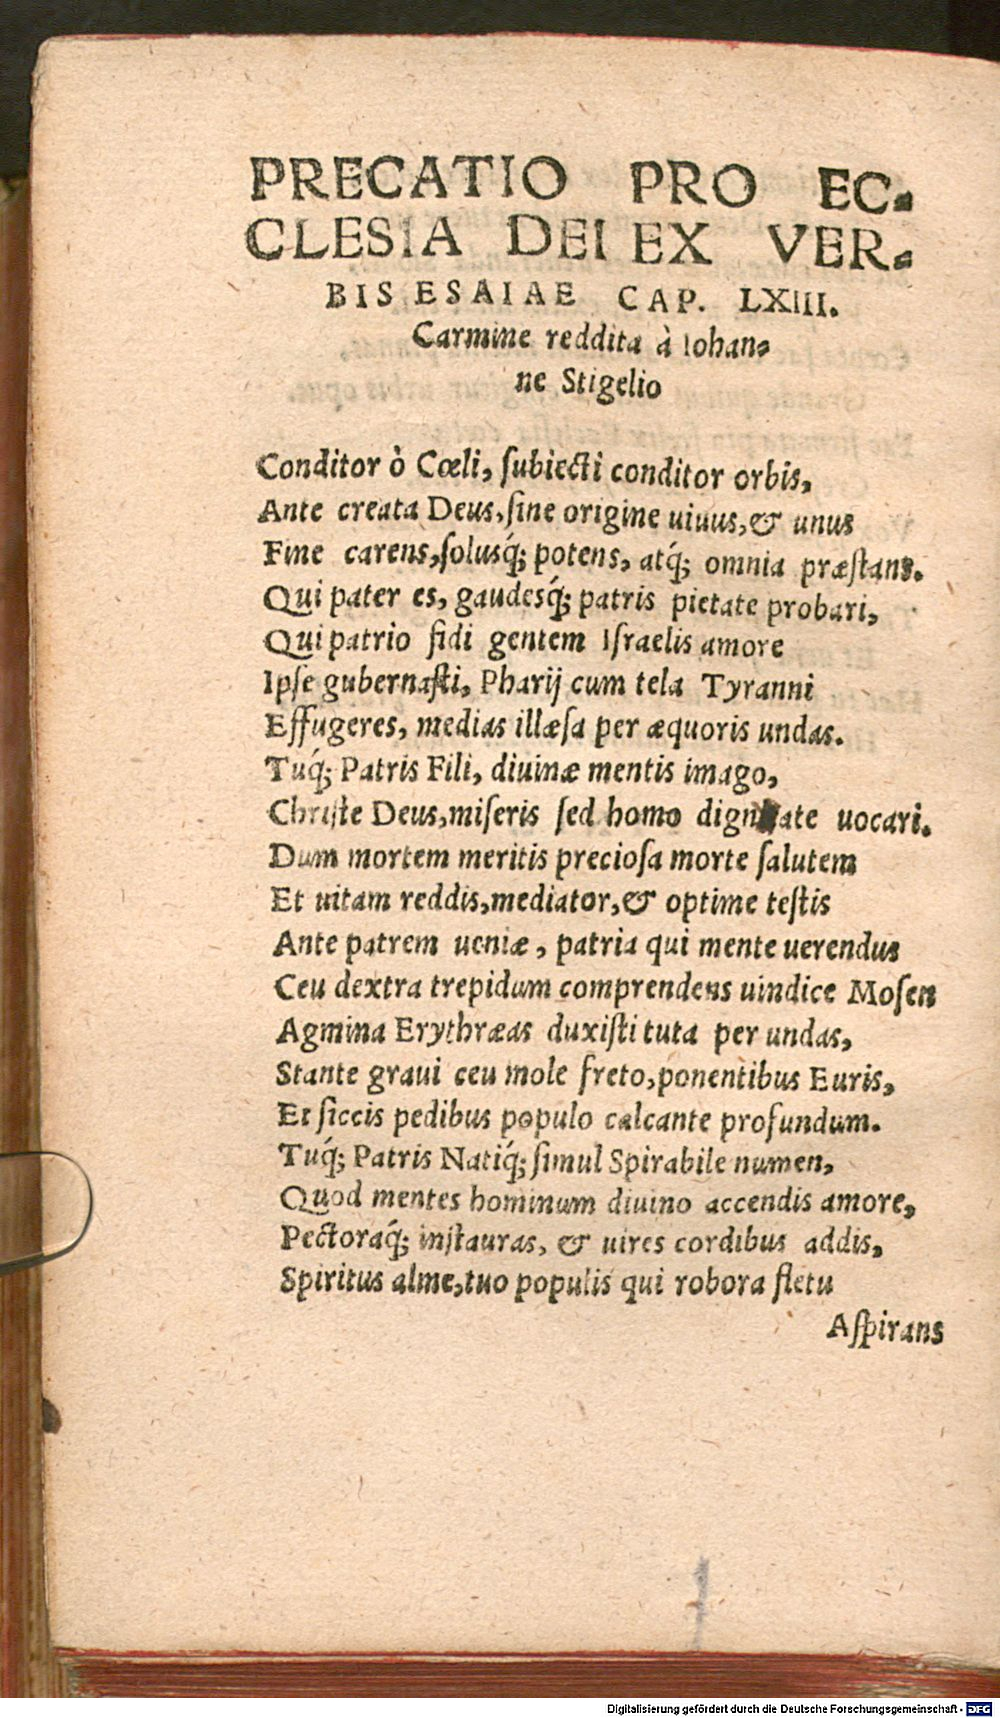 PRECATIO PRO EC-
CLESIA DEI EX VER-
BIS ESAIAE CAP. LXIII.
Carmine reddita à Iohan-
ne Stigelio
Conditor ò Cœli, ſubiecti conditor orbis,
Ante creata Deus, ſine origine uiuus, & unus
Fine carens, ſolusq́; potens, atq́; omnia præſtans.
Qui pater es, gaudesq́; patris pietate probari,
Qui patrio fidi gentem Iſraelis amore
Ipſe gubernaſti, Pharij cum tela Tyranni
Effugeres, medias illæſa per æquoris undas.
Tuq́; Patris Fili, diuinæ mentis imago,
Chriſte Deus, miſeris ſed homo dignitate uocari.
Dum mortem meritis precioſa morte ſalutem
Et uitam reddis, mediator, & optime teſtis
Ante patrem ueniæ, patria qui mente uerendus
Ceu dextra trepidam comprendens uindice Moſen
Agmina Erythræas duxiſti tuta per undas,
Stante graui ceu mole freto, ponentibus Euris,
Et ſiccis pedibus populo calcante profundum.
Tuq́; Patris Natiq́; ſimul Spirabile numen,
Quod mentes hominum diuino accendis amore,
Pectoraq́; inſtauras, & uires cordibus addis,
Spiritus alme, tuo populis qui robora fletu
Aſpirans
Digitalisierung gefördert durch die Deutsche Forschungsgemeinschaft - DFG